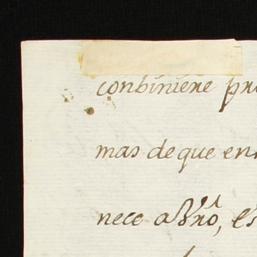 conbiniere pro
mas de que en
nece a Vro, es